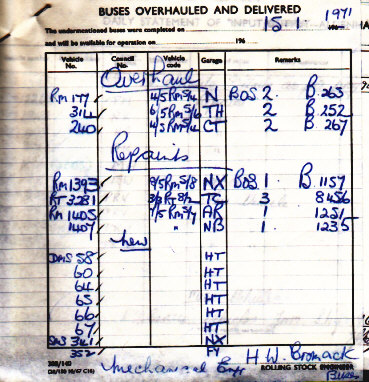 BUSES OVERHAULED AND DELIVERED
The undermentioned buses were completed on 15-1 1971
and will be available for operation on 196
Vehicle No. Council No. Vehicle code Garage Remarks
Overhaul
RM 177 4/5 RM5/4 N BOS 2. B.263
314 6/5 RM5/6 TH 2 B 252
240 4/5 RM5/4 CT 2 B.267
Repaints
RM 1393 9/5 RM5/8 NX BOS. 1 B. 1157
RT 3281 3/2 RT8/2 TC 3 8456
RM 1405 7/5 RM5/7 AR 1 1251
1407 " NB 1 1235
New
DMS 58 HT
60 HT
64 HT
65 HT
66 HT
67 HT
SMS 341 NX
352 FY
Mechanical Eng H.W. Bromack
ROLLING STOCK ENGINEER
Buses